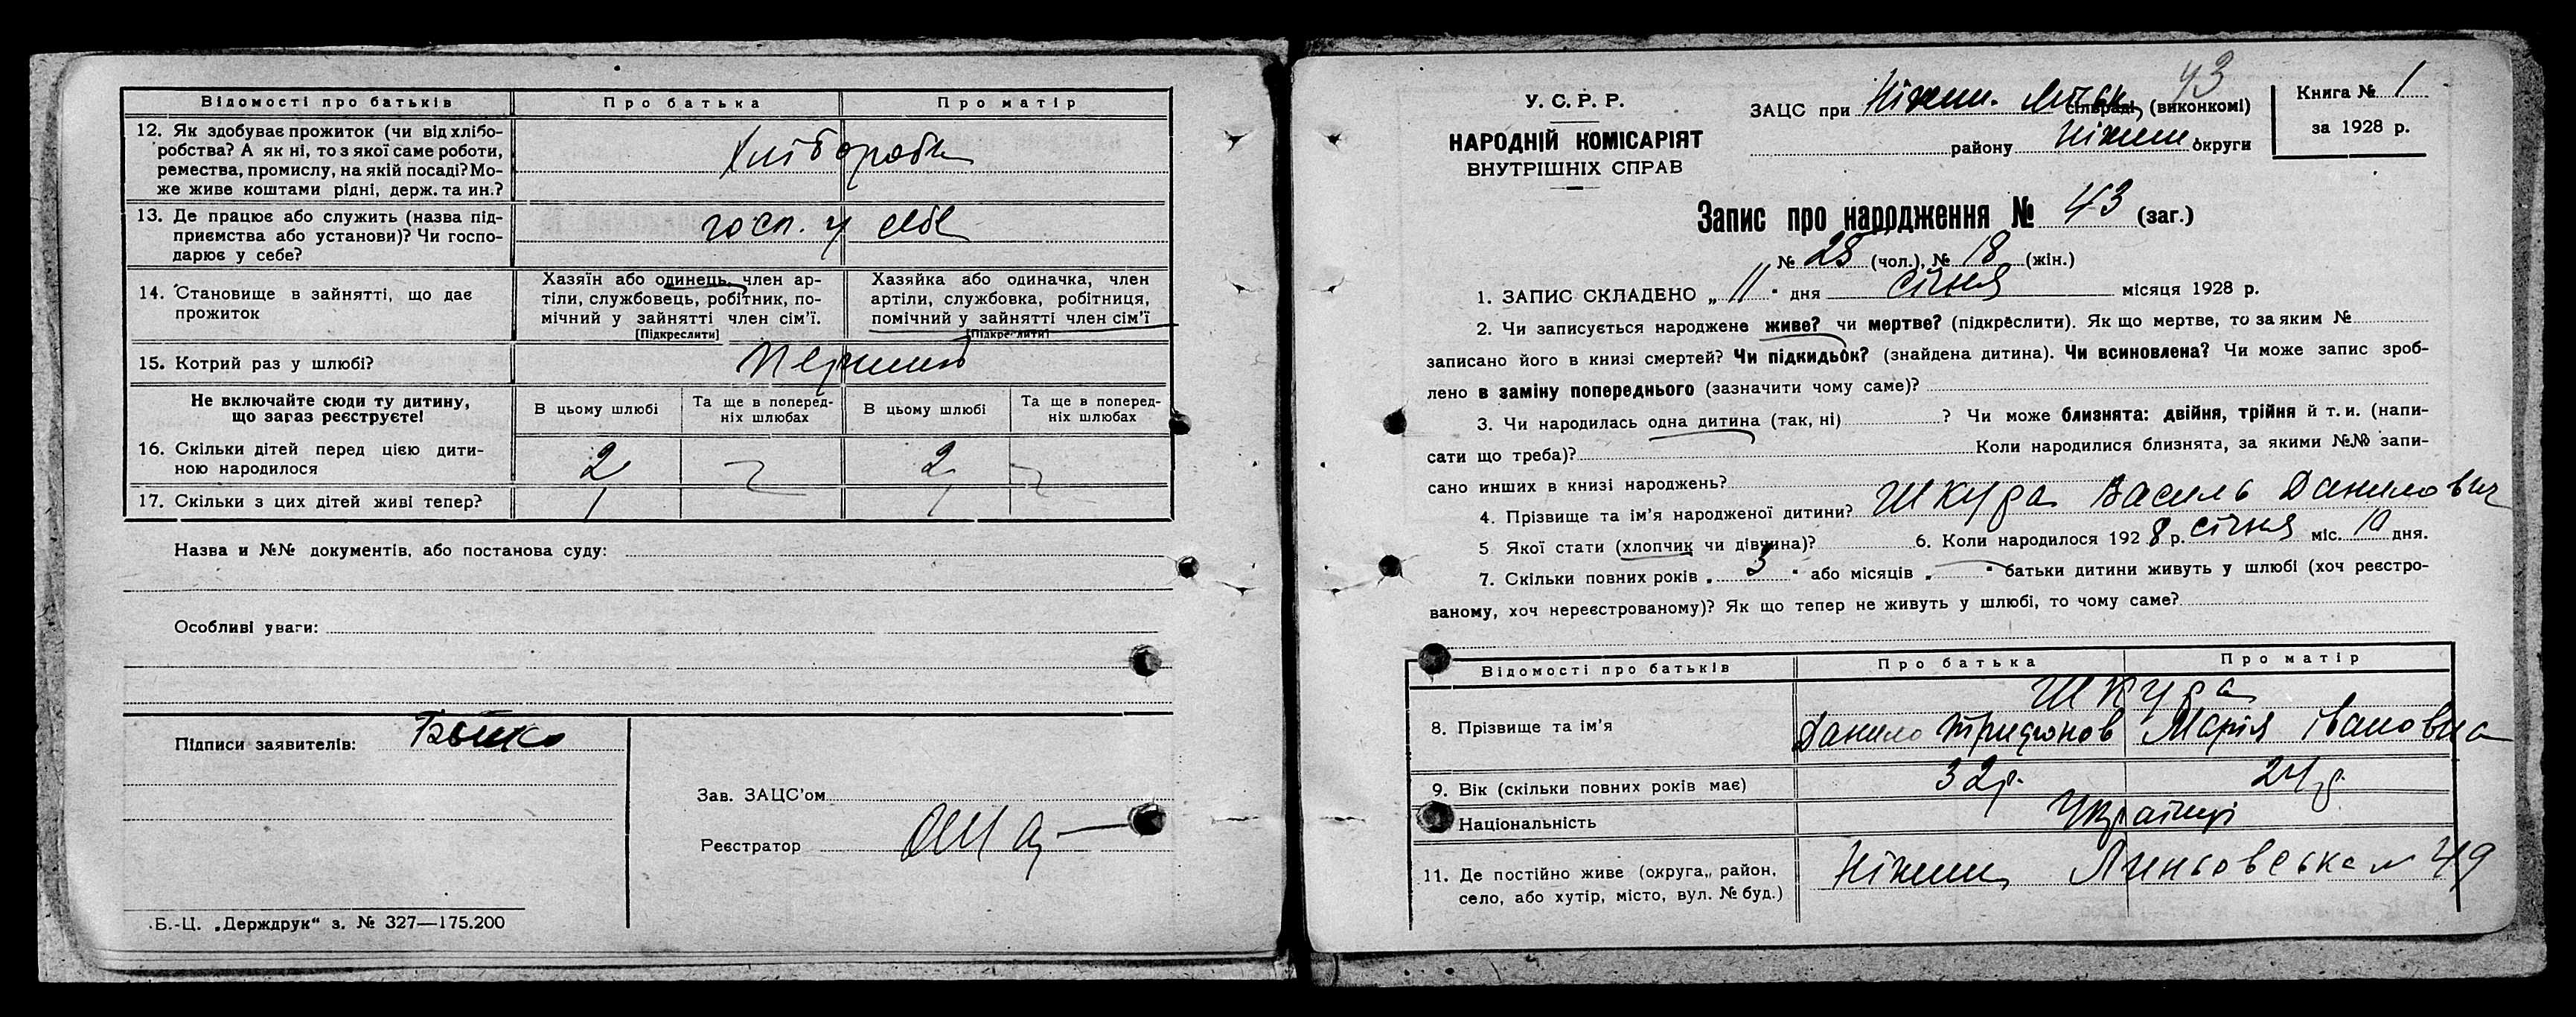 Відомості про батьків Про батька Про матір
12. Як здобуває прожиток (чи від хлібо-
робства? А як ні, то з якої саме роботи,
ремества, промислу, на якій посаді? Мо-
же живе коштами рідні, держ. та ин.?
Хлібороби
13. Де працює або служить (назва під-
приємства або установи)? Чи госпо-
дарює у себе?
госп. у себе
14. Становище в зайнятті, що дає
прожиток
Хазяїн або одинець, член ар-
тіли, службовець, робітник, по-
мічний у зайнятті член сім'ї.
[Підкреслити]
Хазяйка або одиначка, член
артіли, службовка, робітниця,
помічний у зайнятті член сім'ї
[Підкреслити]
15. Котрий раз у шлюбі?
Не включайте сюди ту дитину,
що загаз реєструєте!
В цьому шлюбі
Та ще в поперед-
ніх шлюбах
В цьому шлюбі
Та ще в поперед-
ніх шлюбах
16. Скільки дітей перед цією дити-
ною народилося
2 2
17. Скільки з цих дітей живі тепер? 1 1
Назва и №№ документів, або постанова суду:
Особливі уваги:
Підписи заявителів:
Зав. ЗАЦС'ом
Реєстратор
Б.-Ц. „Держдрук" з. № 327—175.200
43
У. С. Р. Р.
НАРОДНІЙ КОМІСАРІЯТ
ВНУТРІШНІХ СПРАВ
ЗАЦС при Ніжин. сільраді, (виконкомі)
району Ніжин округи
Книга № 1
за 1928 р.
Запис про народження № 43 (заг.)
№ 25 (чол.), № 18 (жін.)
1. ЗАПИС СКЛАДЕНО „11" дня січня місяця 1928 р.
2. Чи записується народжене живе? чи мертве? (підкреслити). Як що мертве, то за яким №
записано його в книзі смертей? Чи підкидьок? (знайдена дитина). Чи всиновлена? Чи може запис зроб-
лено в заміну попереднього (зазначити чому саме)?
3. Чи народилась одна дитина (так, ні) ? Чи може близнята: двійня, трійня й т. и. (напи-
сати що треба)? Коли народилися близнята, за якими №№ запи-
сано инших в книзі народжень?
4. Прізвище та ім'я народженої дитини? Шкура Василь Данилович
5 Якої стати (хлопчик чи дівчина)? 6. Коли народилося 1928 р. січня міс. 10 дня.
7. Скільки повних років „ 5 " або місяців „ " батьки дитини живуть у шлюбі (хоч реєстро-
ваному, хоч нереєстрованому)? Як що тепер не живуть у шлюбі, то чому саме?
Відомості про батьків Про батька Про матір
Шкура
8. Прізвище та ім'я Данило Трифонов Марія Івановна
9. Вік (скільки повних років має) 32 р. 24 р.
Національність Українці
11. Де постійно живе (округа,, район,
село, або хутір, місто, вул. № буд.)
Ніжин, 49